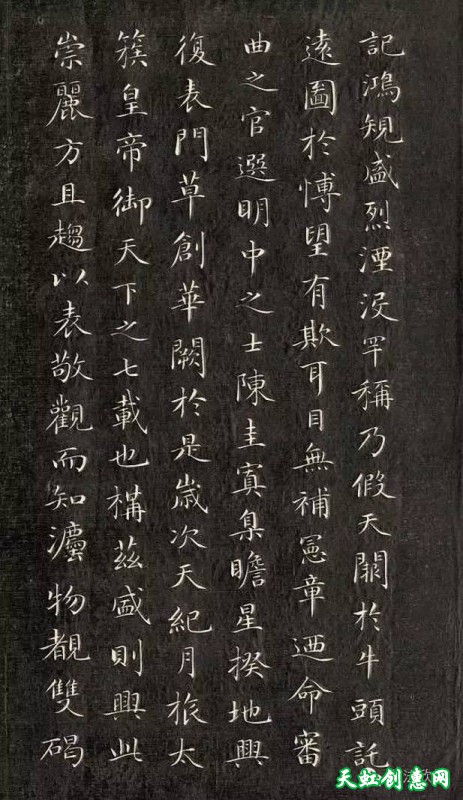 記鴻規盛烈湮没罕稱乃假天闕於牛頭託
遠圖於博望有欺耳目無補憲章迺命審
曲之官選明中之士陳圭寘臬瞻星揆地興
復表門草創華闕於是歲次天紀月旅太
簇皇帝御天下之七載也構茲盛則興此
崇麗方且趨以表敬觀而知灋物覩雙碣
天虹创意网